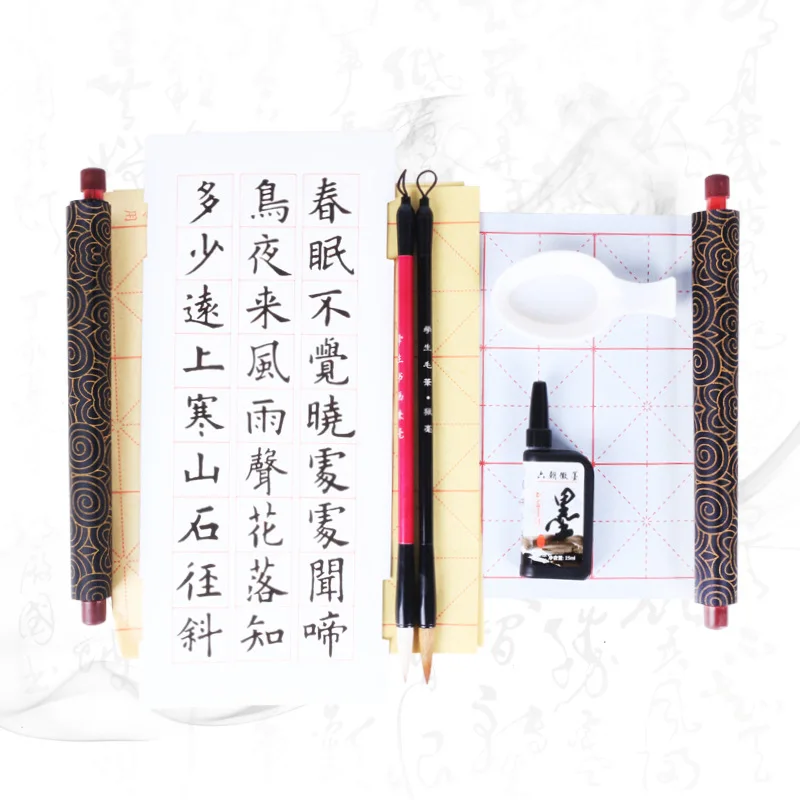 春眠不覺曉處處聞啼
鳥夜来風雨聲花落知
多少遠上寒山石径斜
學生毛筆·狼毫
六朝徽墨
墨
25ml
用